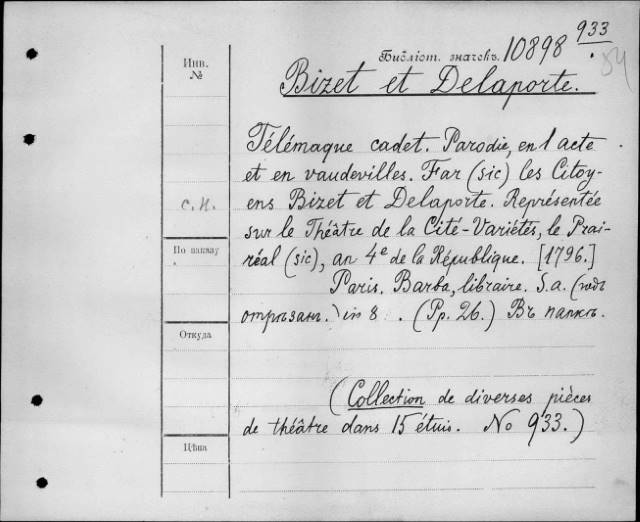 933
Инв. №
Библіот. значекъ. 10898
84
Bizet et Delaporte.
Télémaque cadet. Parodie, en 1 acte
et en vaudevilles. Far (sic) les Citoy-
c. н.
ens Bizet et Delaporte. Représentée
sur le Théâtre de la Cité-Variétés, le Prai-
По паквау
réal (sic), an 4e de la République. [1796.]
Paris. Barba, libraire. S.a. (годъ
отрѣзанъ.) in 8 . (Pp. 26.) Въ папкѣ.
Откуда
(Collection de diverses pièces
de théâtre dans 15 étuis. No 933.)
Цѣна